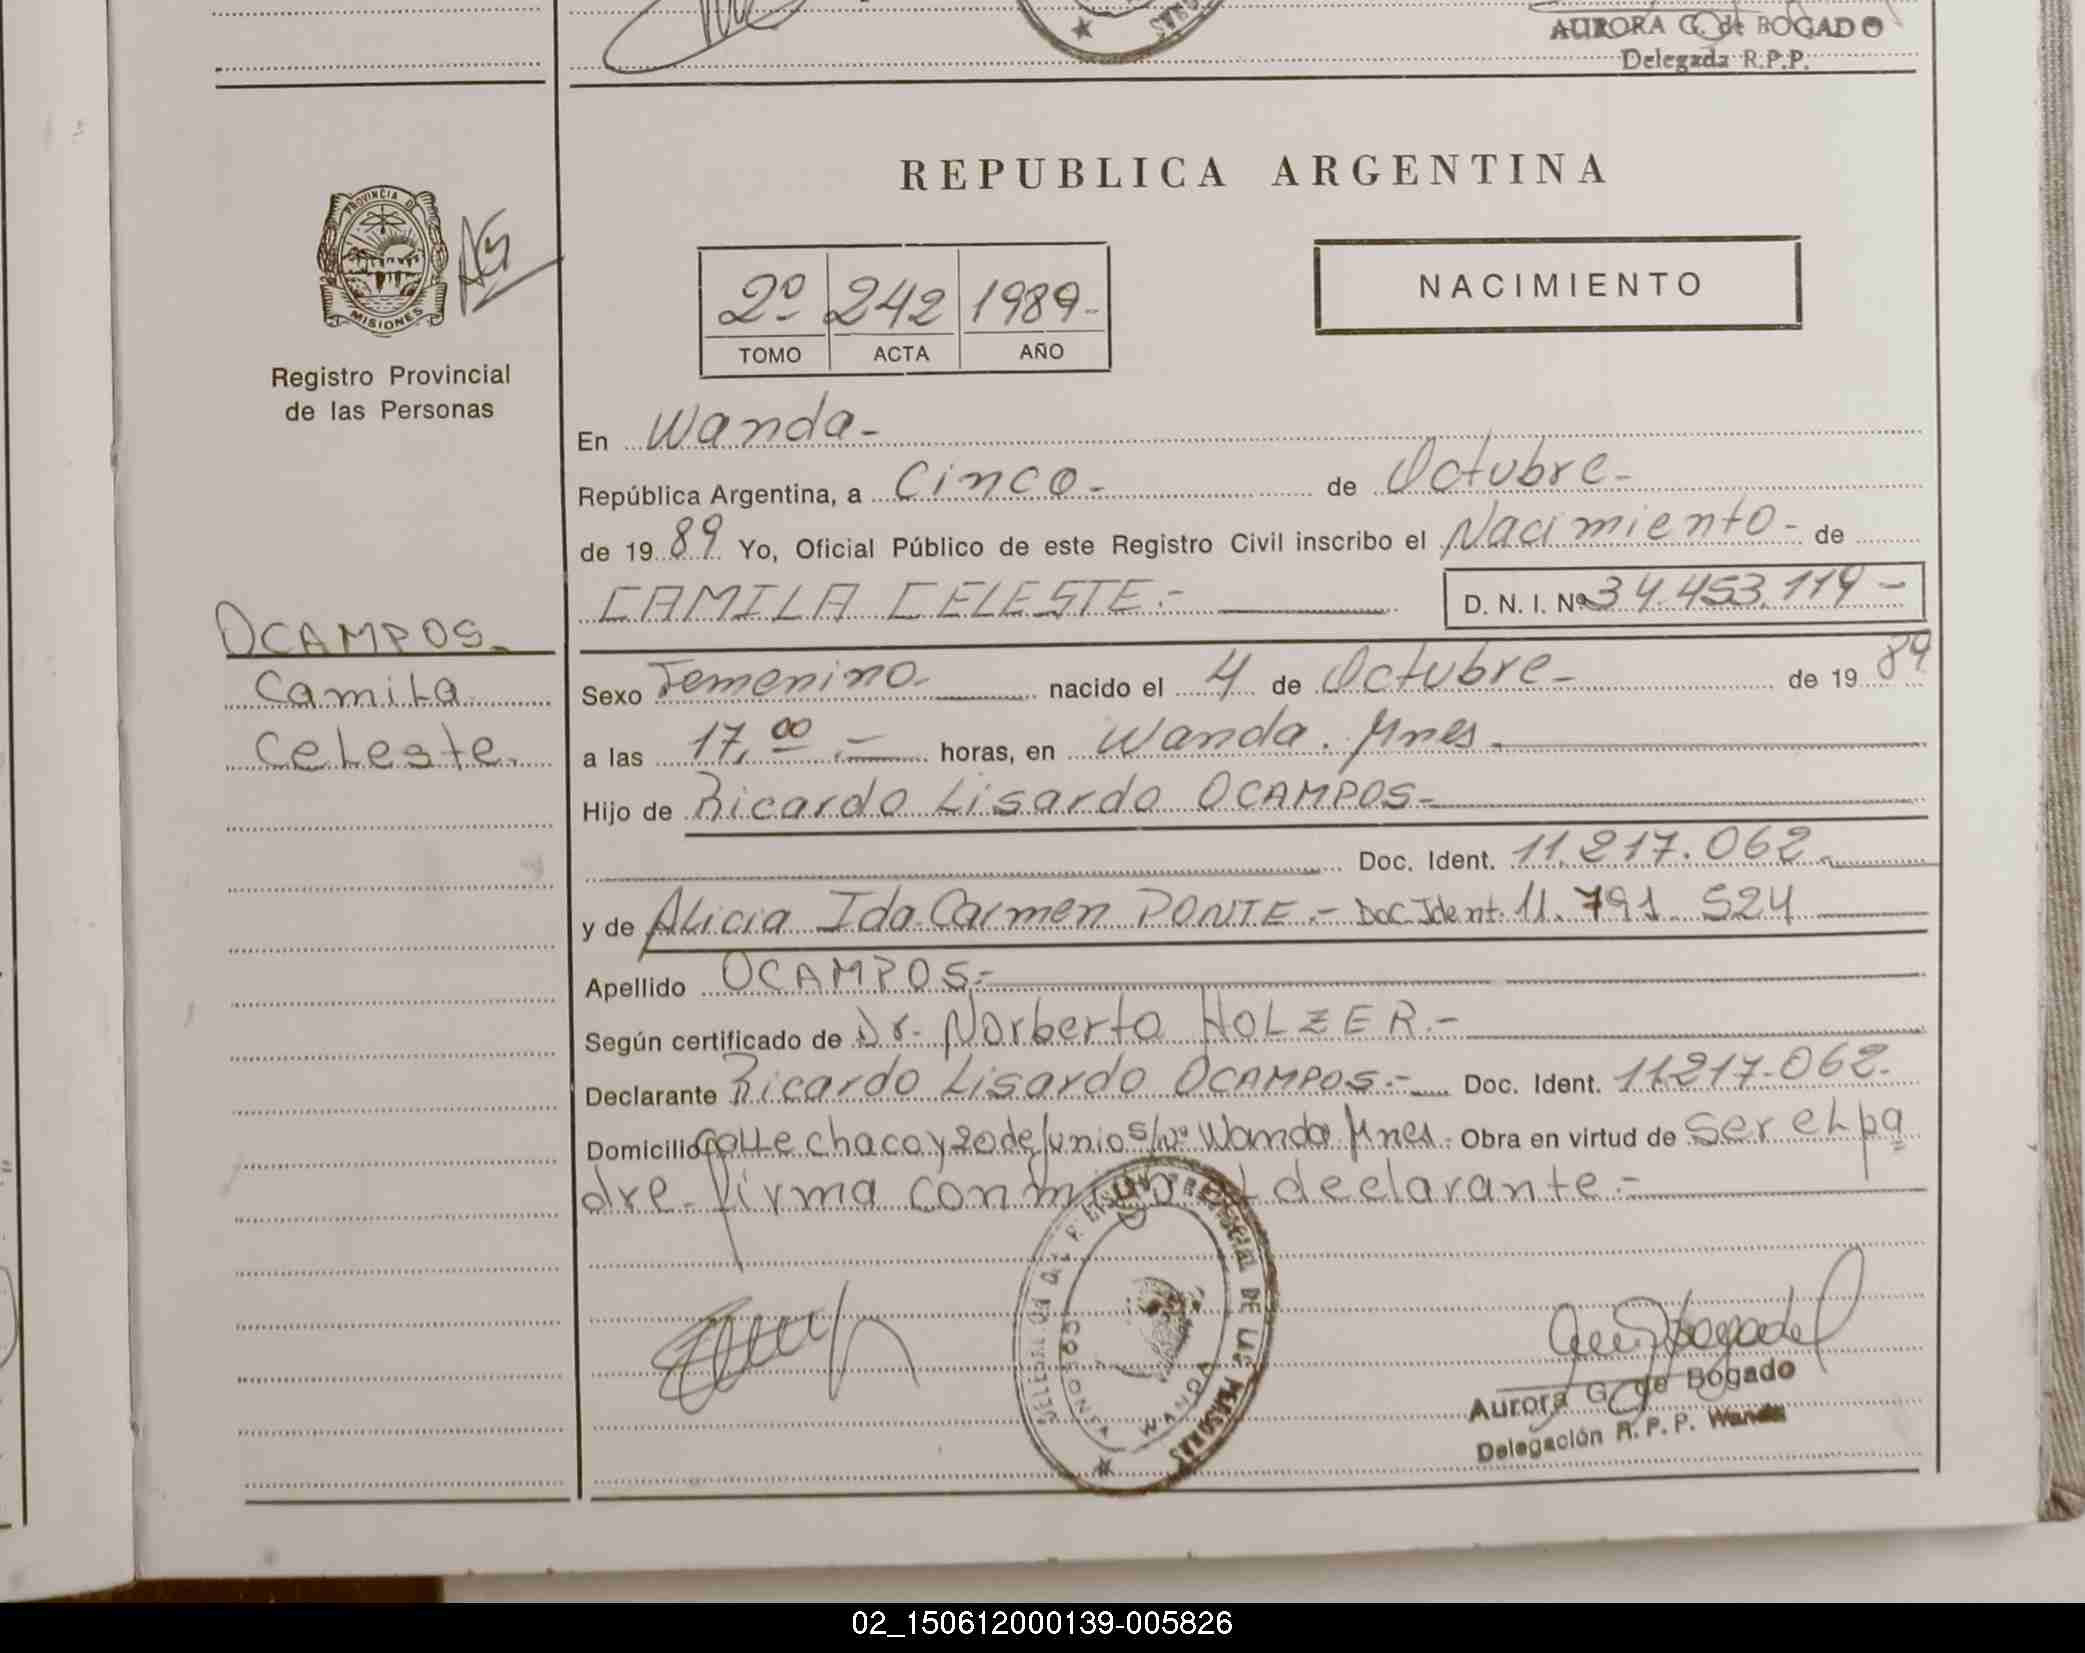 AURORA G. de BOGADO
Delegada R.P.P.
REPUBLICA ARGENTINA
PROVINCIA D
MISIONES
2º 242 1989-
TOMO ACTA AÑO
NACIMIENTO
Registro Provincial
de las Personas
En Wanda-
República Argentina, a Cinco- de Octubre-
de 19 89 Yo, Oficial Público de este Registro Civil inscribo el Nacimiento- de
CAMILA CELESTE.- D. N. I. Nº 34.453.119-
OCAMPOS.
Camila
Celeste.
Sexo Femenino- nacido el 4 de Octubre- de 19 89
a las 17,00.- horas, en Wanda. Mnes.
Hijo de Ricardo Lisardo OCAMPOS-
Doc. Ident. 11.217.062.
y de Alicia Ida Carmen PONTE.- Doc Ident. 11.791.524
Apellido OCAMPOS.-
Según certificado de Dr. Norberto HOLZER.-
Declarante Ricardo Lisardo OCAMPOS.- Doc. Ident. 11.217.062.
Domicilio Calle chaco y 20 de Junio S/Nº Wanda Mnes. Obra en virtud de ser el pa
dre- firma conmigo el declarante.-
PROVINCIAL DE LAS PERSONAS
WANDA
Aurora G. de Bogado
Delegación R. P. P. Wanda
02_150612000139-005826